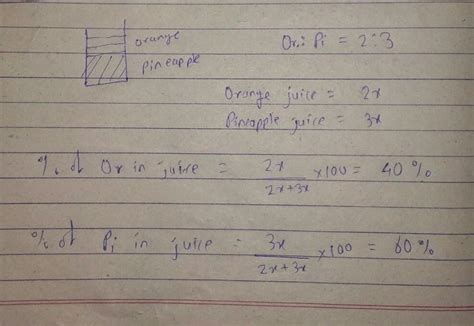 orange
Or : Pi = 2:3
pineapple
Orange juice = 2x
Pineapple juice = 3x
% of Or in juice = 2x/2x+3x ×100 = 40%
% of Pi in juice = 3x/2x+3x ×100 = 60%